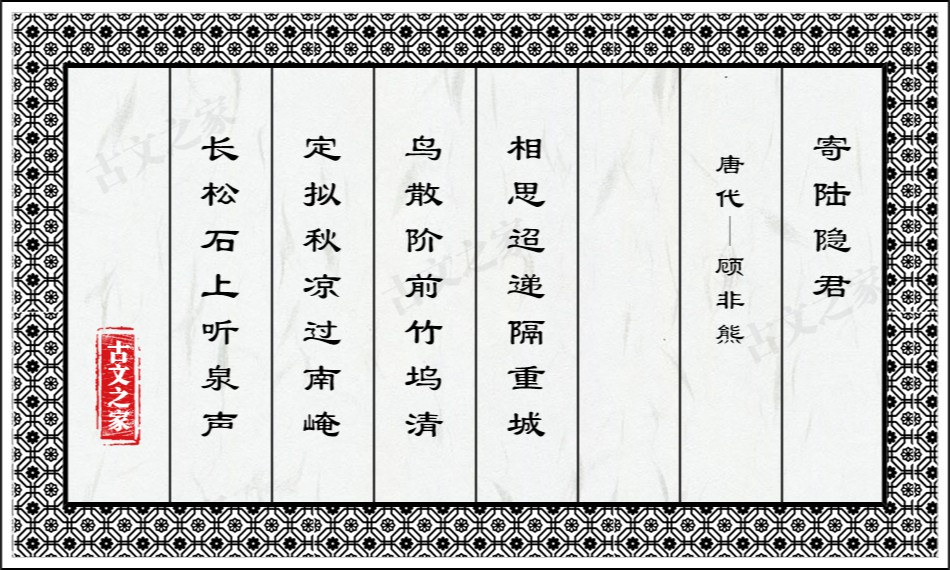 寄陆隐君
唐代—顾非熊
相思迢递隔重城
鸟散阶前竹坞清
定拟秋凉过南崦
长松石上听泉声
古文之家
古文之家
古文之家
古文之家